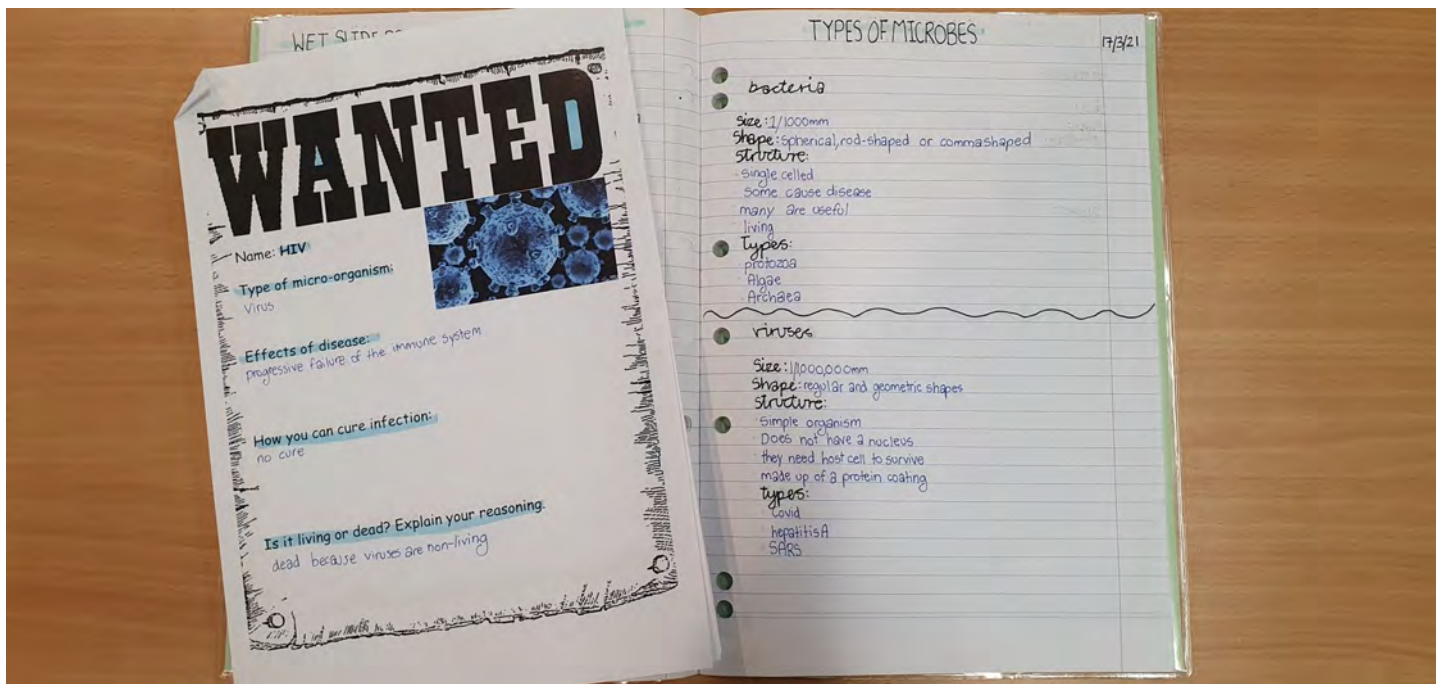 WET SLIDE
WANTED
Name: HIV
Type of micro-organism:
Virus
Effects of disease:
progressive failure of the immune system
How you can cure infection:
no cure
Is it living or dead? Explain your reasoning.
dead because viruses are non-living
TYPES OF MICROBES
17/3/21
bacteria
Size: 1/1000mm
Shape: spherical, rod-shaped or comma shaped
Structure:
· single celled
some cause disease
many are useful
· living
Types:
· protozoa
· Algae
· Archaea
viruses
Size: 1/1,000,000mm
Shape: regular and geometric shapes
Structure:
· Simple organism
· Does not have a nucleus
· they need host cell to survive
made up of a protein coating
types:
· Covid
· hepatitis A
· SARS